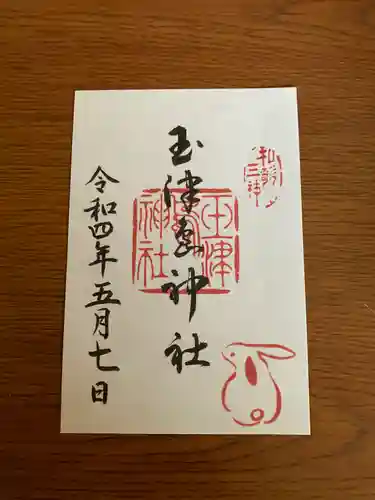 和歌三神
玉津島神社
玉津
島
神社
令和四年五月七日